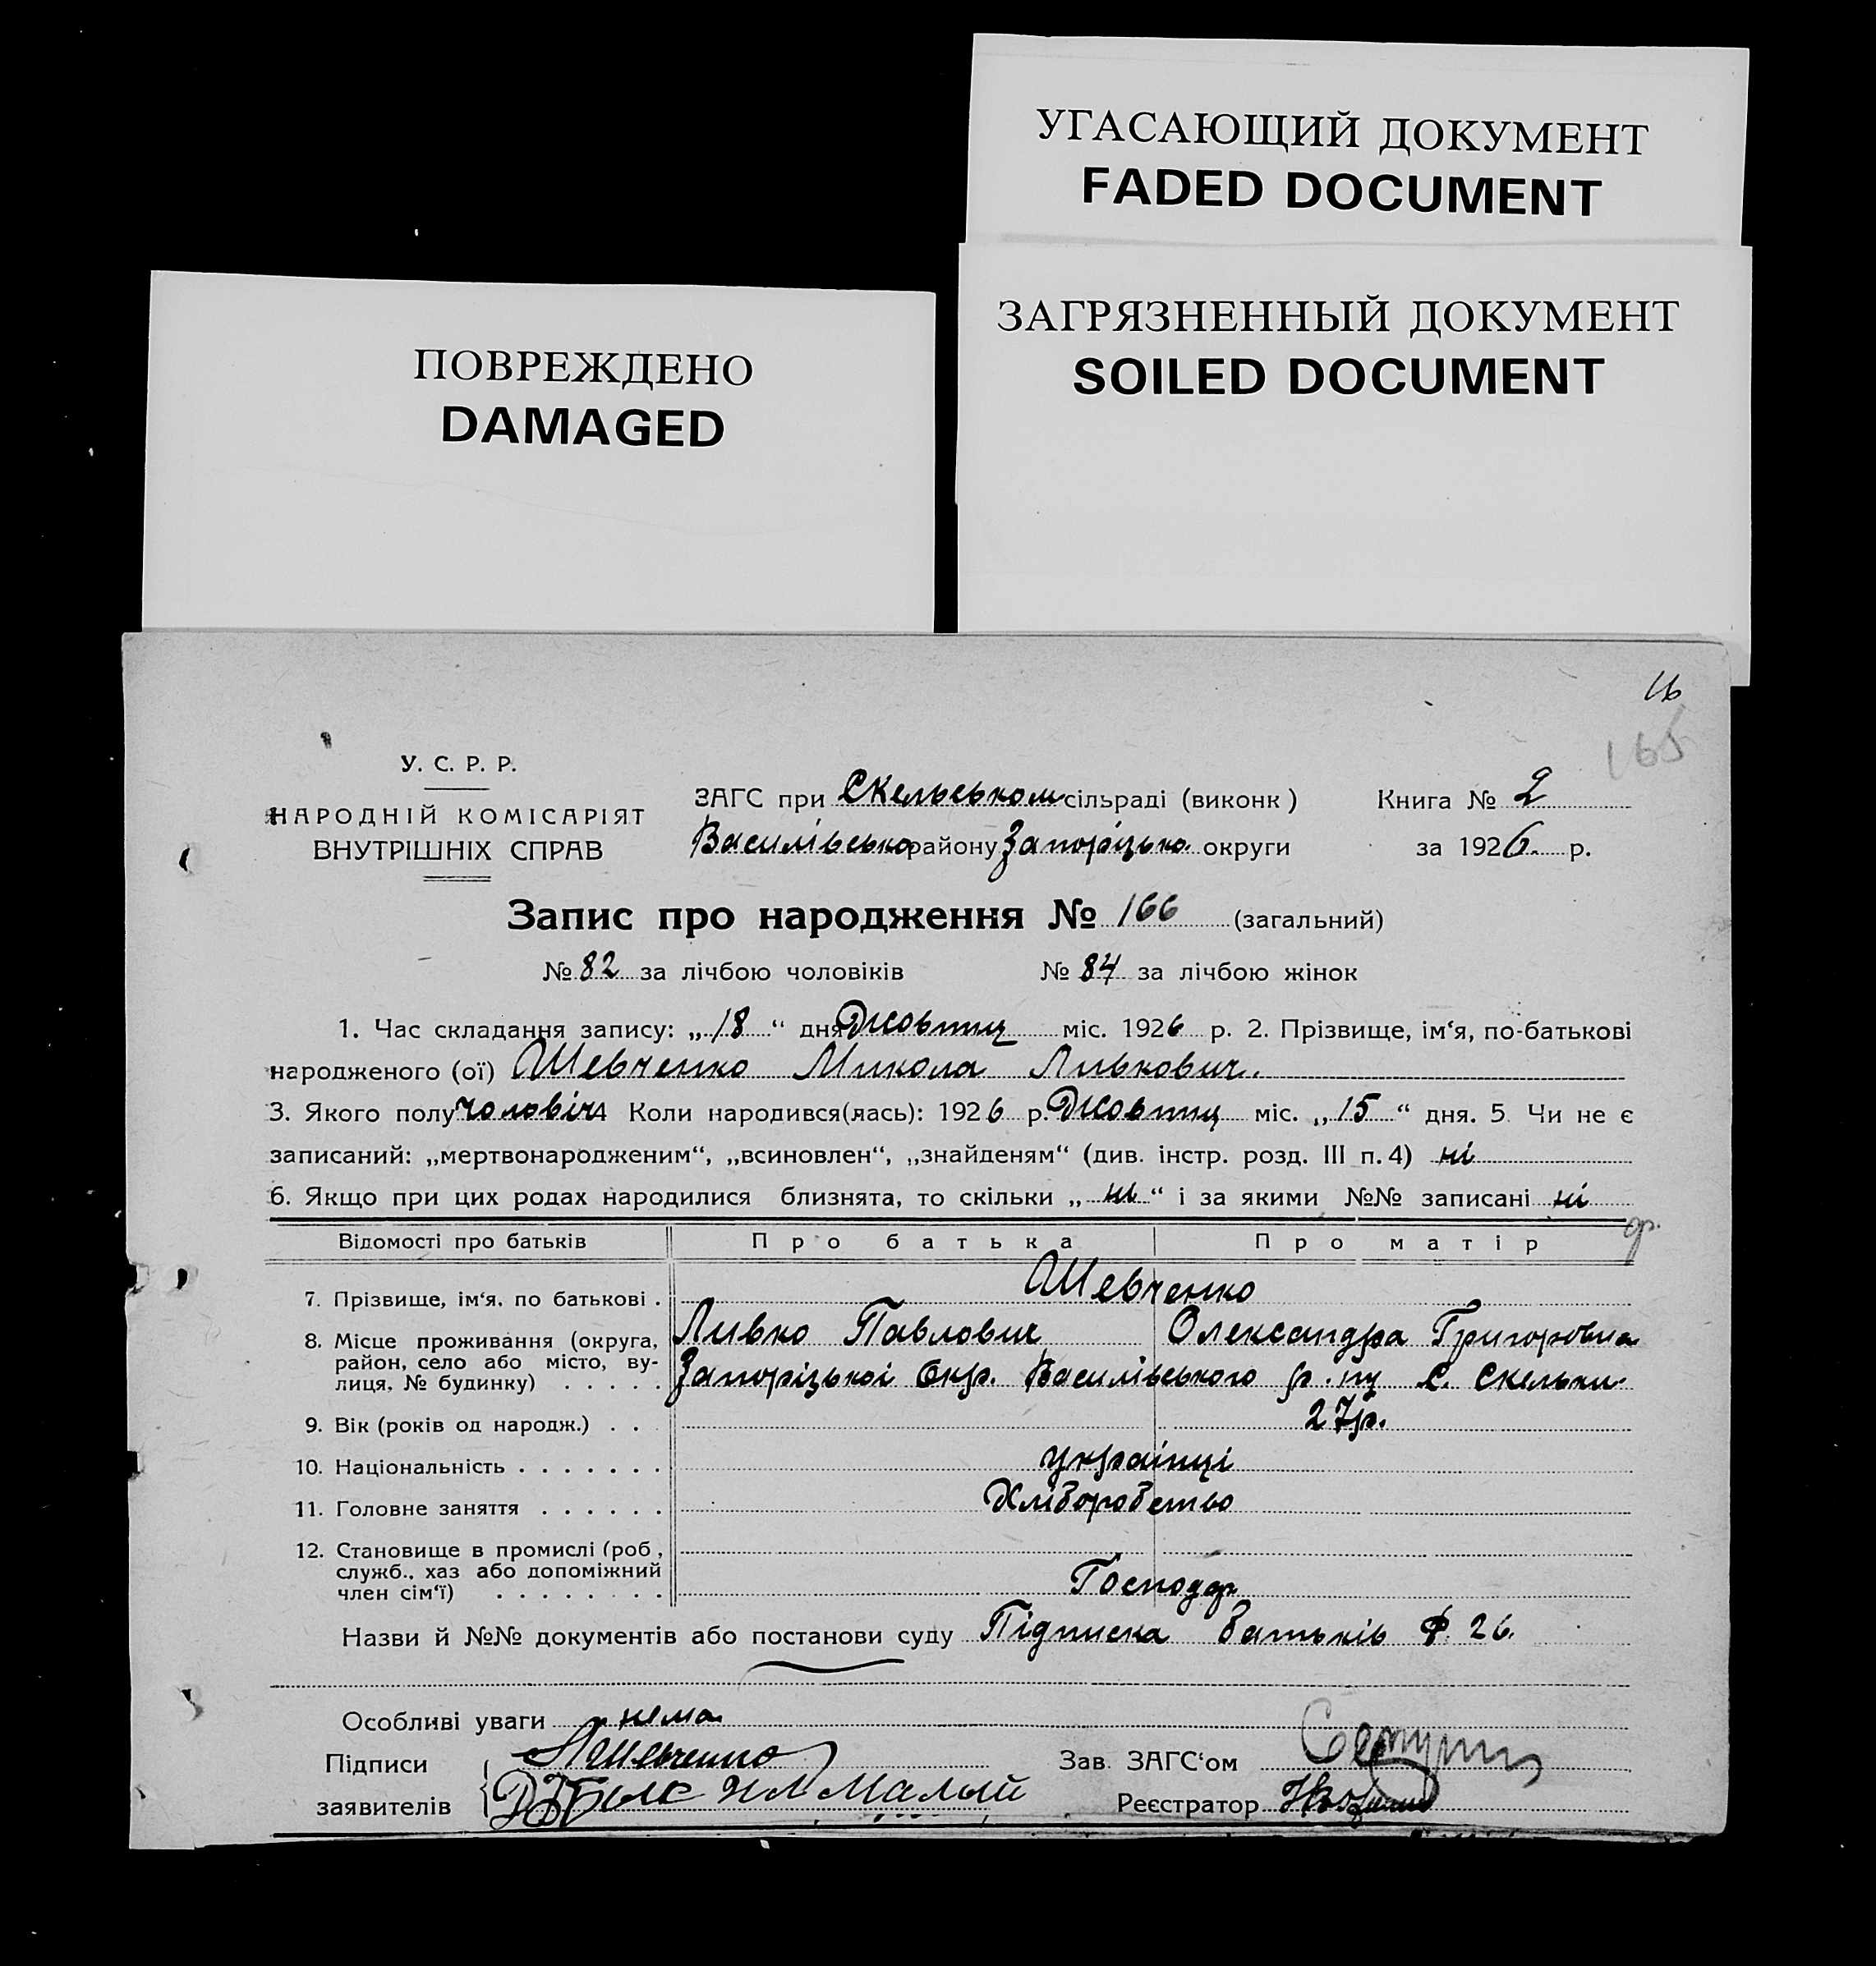 УГАСАЮЩИЙ ДОКУМЕНТ
FADED DOCUMENT
ЗАГРЯЗНЕННЫЙ ДОКУМЕНТ
SOILED DOCUMENT
ПОВРЕЖДЕНО
DAMAGED
165
У. С. Р. Р.
НАРОДНІЙ КОМІСАРІЯТ
ВНУТРІШНІХ СПРАВ
ЗАГС при Скельськом сільраді (виконк) Книга № 2
Василівсько району Запоріцько округи за 1926. р.
Запис про народження № 166 (загальний)
№ 82 за лічбою чоловіків № 84 за лічбою жінок
1. Час складання запису: „18“ дня Жовтня міс. 1926 р. 2. Прізвище, ім‘я, по-батькові
народженого (ої) Шевченко МиколаЛивкович.
3. Якого полу чоловіч 4 Коли народився(лась): 1926 р. Жовтня міс. „15“ дня. 5. Чи не є
записаний: „мертвонародженим“, „всиновлен“, „знайденям“ (див. інстр. розд. III п. 4) ні
6. Якщо при цих родах народилися близнята, то скільки „ні“ і за якими №№ записані ні
Відомості про батьків Про батька Про матір
7. Прізвище, ім‘я, по батькові . Шевченко
8. Місце проживання (округа, Ливко Павлович Олександра Григоровна
район, село або місто, ву-
лиця, № будинку) . . . . . Запорізької Окр. Василівського р. ну С. Скельки
9. Вік (років од народж.) . . 27р.
10. Національність . . . . . . . українці
11. Головне заняття . . . . . . Хліборобство
12. Становище в промислі (роб.,
служб., хаз або допоміжний
член сім‘ї) . . . . . . . . Господар
Назви й №№ документів або постанови суду Підписка батьків Ф. 26.
Особливі уваги нема
Підписи Л Шевченко Зав. ЗАГС‘ом
заявителів Бык Малый Реєстратор